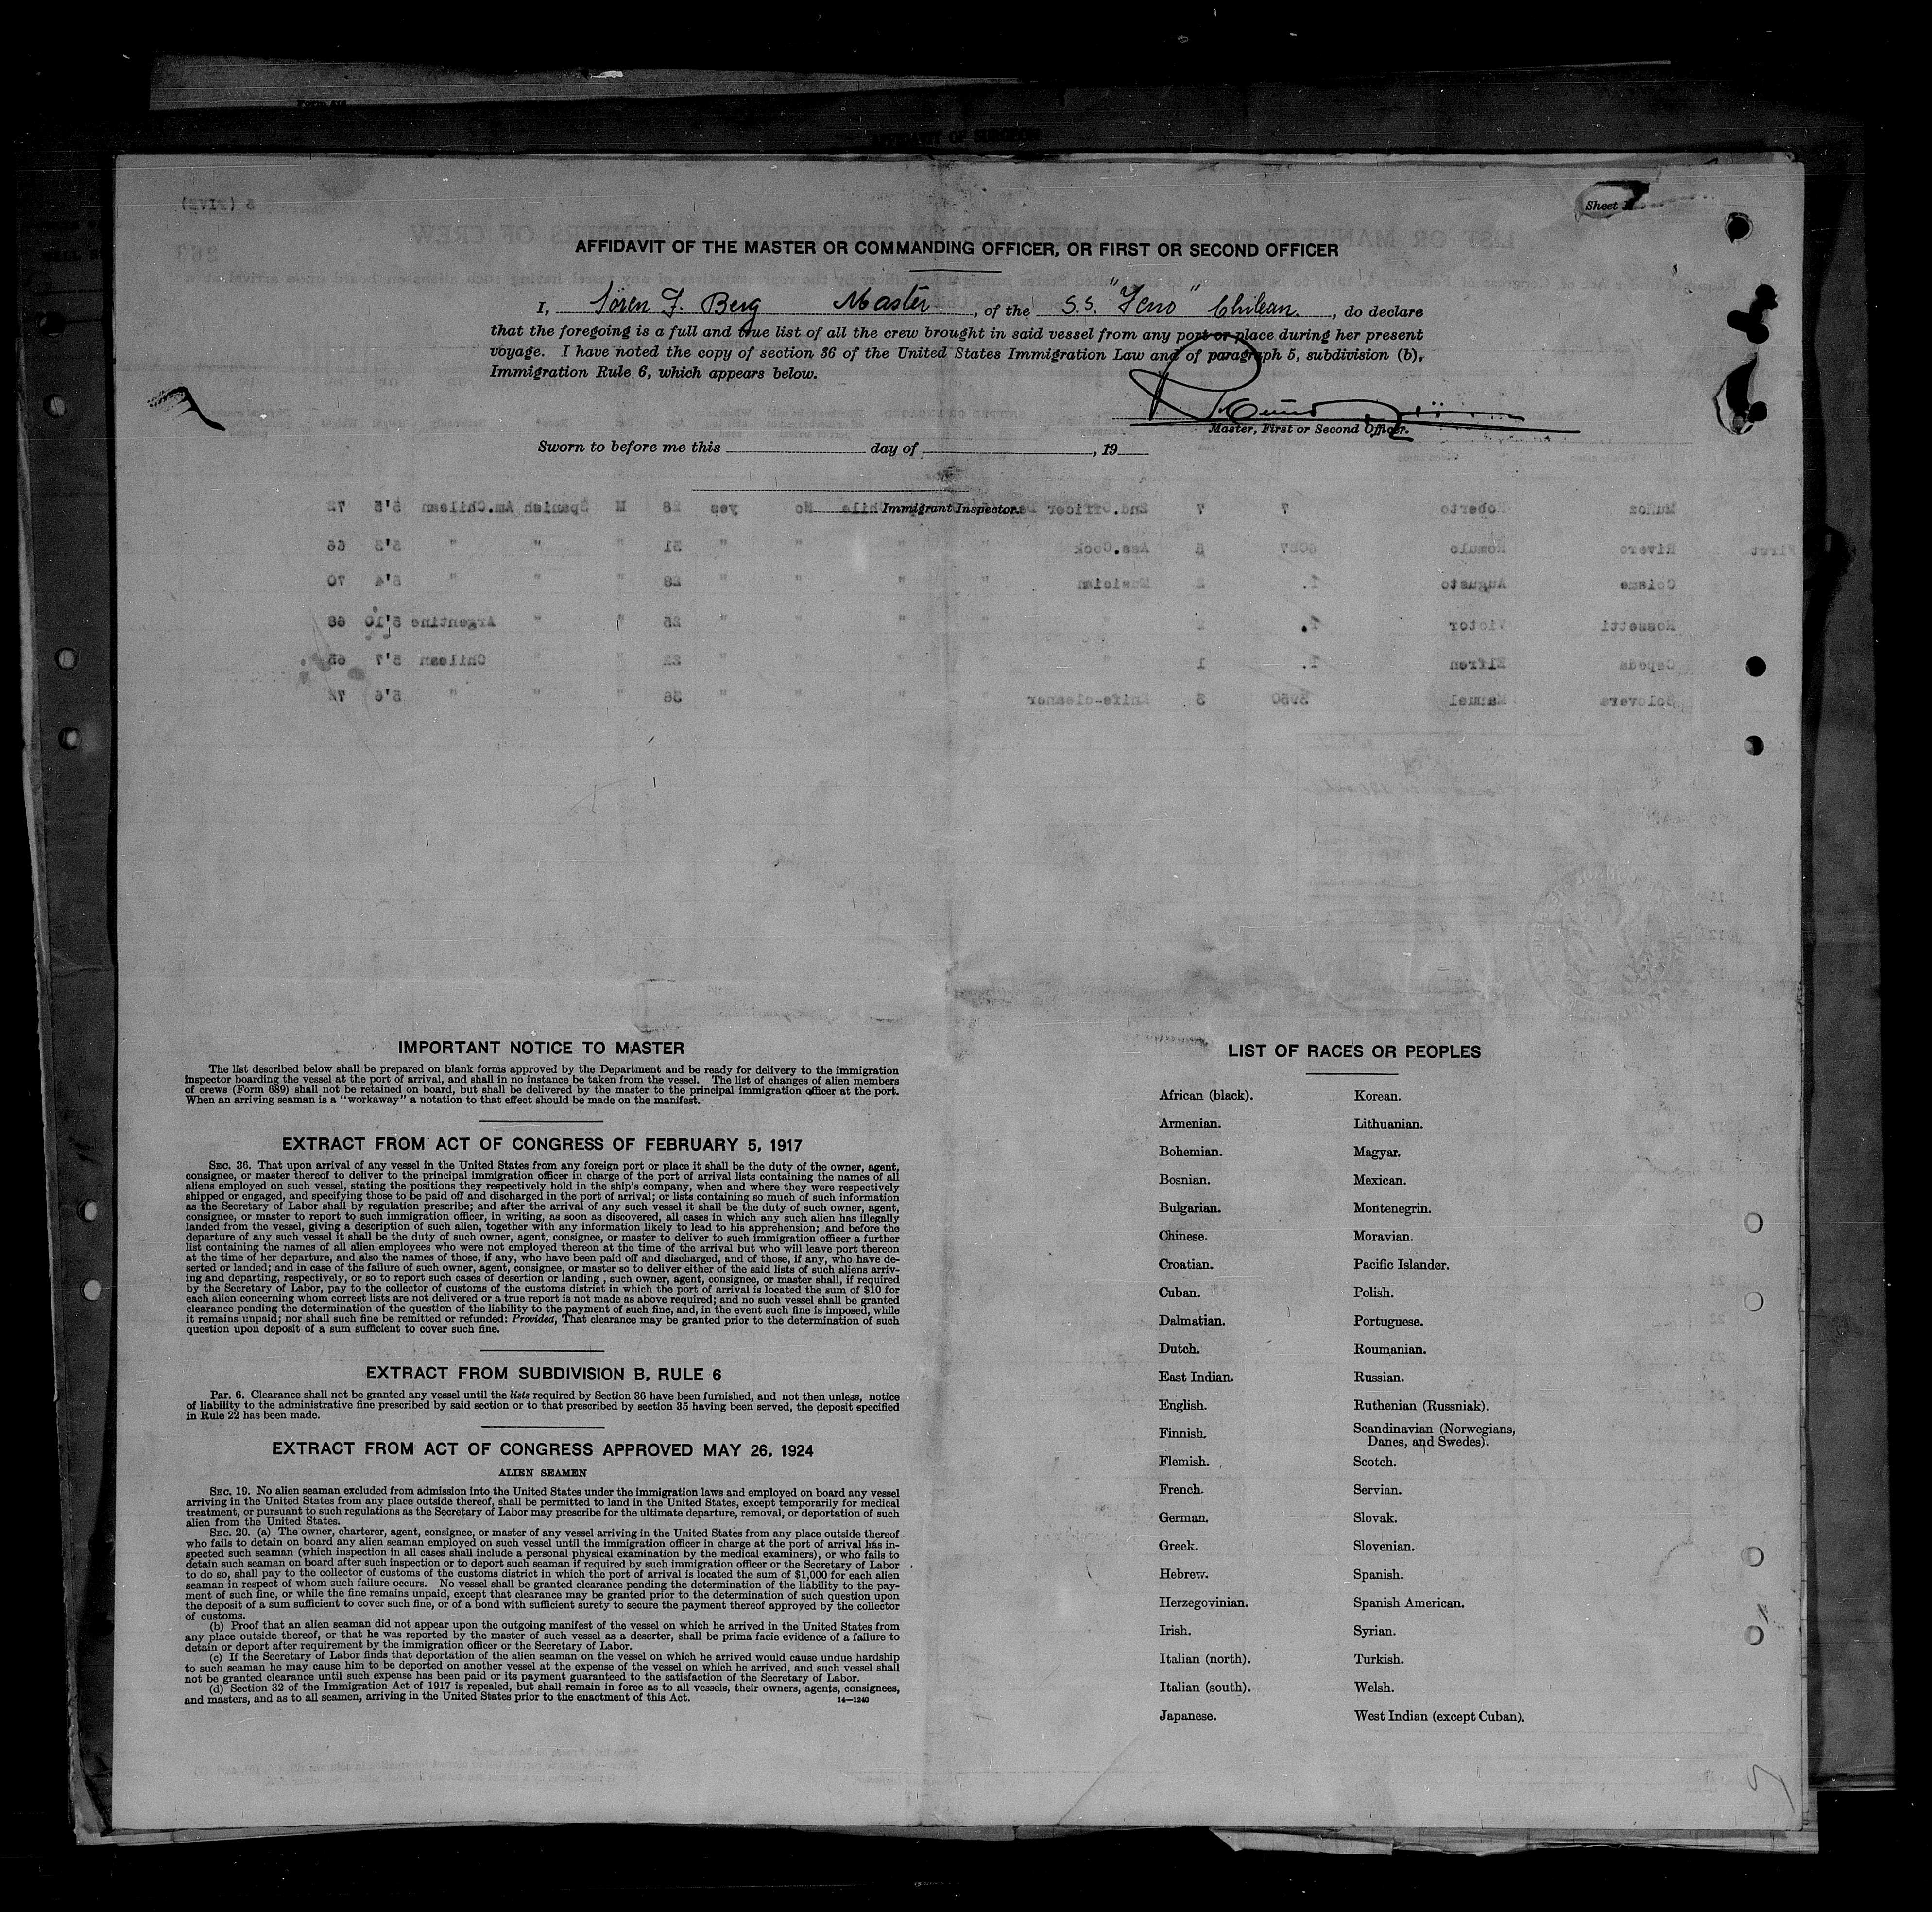 Sheet
AFFIDAVIT OF THE MASTER OR COMMANDING OFFICER, OR FIRST OR SECOND OFFICER
I, Sören J. Berg Master, of the S.S. "Teno" Chilean, do declare
that the foregoing is a full and true list of all the crew brought in said vessel from any port or place during her present
voyage. I have noted the copy of section 36 of the United States Immigration Law and of paragraph 5, subdivision (b),
Immigration Rule 6, which appears below.
Master, First or Second Officer.
Sworn to before me this day of , 19
Immigrant Inspector.
IMPORTANT NOTICE TO MASTER
The list described below shall be prepared on blank forms approved by the Department and be ready for delivery to the immigration
inspector boarding the vessel at the port of arrival, and shall in no instance be taken from the vessel. The list of changes of alien members
of crews (Form 689) shall not be retained on board, but shall be delivered by the master to the principal immigration officer at the port.
When an arriving seaman is a "workaway" a notation to that effect should be made on the manifest.
EXTRACT FROM ACT OF CONGRESS OF FEBRUARY 5, 1917
SEC. 36. That upon arrival of any vessel in the United States from any foreign port or place it shall be the duty of the owner, agent,
consignee, or master thereof to deliver to the principal immigration officer in charge of the port of arrival lists containing the names of all
aliens employed on such vessel, stating the positions they respectively hold in the ship's company, when and where they were respectively
shipped or engaged, and specifying those to be paid off and discharged in the port of arrival; or lists containing so much of such information
as the Secretary of Labor shall by regulation prescribe; and after the arrival of any such vessel it shall be the duty of such owner, agent,
consignee, or master to report to such immigration officer, in writing, as soon as discovered, all cases in which any such alien has illegally
landed from the vessel, giving a description of such alien, together with any information likely to lead to his apprehension; and before the
departure of any such vessel it shall be the duty of such owner, agent, consignee, or master to deliver to such immigration officer a further
list containing the names of all alien employees who were not employed thereon at the time of the arrival but who will leave port thereon
at the time of her departure, and also the names of those, if any, who have been paid off and discharged, and of those, if any, who have de-
serted or landed; and in case of the failure of such owner, agent, consignee, or master so to deliver either of the said lists of such aliens arriv-
ing and departing, respectively, or so to report such cases of desertion or landing , such owner, agent, consignee, or master shall, if required
by the Secretary of Labor, pay to the collector of customs of the customs district in which the port of arrival is located the sum of $10 for
each alien concerning whom correct lists are not delivered or a true report is not made as above required; and no such vessel shall be granted
clearance pending the determination of the question of the liability to the payment of such fine, and, in the event such fine is imposed, while
it remains unpaid; nor shall such fine be remitted or refunded: Provided, That clearance may be granted prior to the determination of such
question upon deposit of a sum sufficient to cover such fine.
EXTRACT FROM SUBDIVISION B, RULE 6
Par. 6. Clearance shall not be granted any vessel until the lists required by Section 36 have been furnished, and not then unless, notice
of liability to the administrative fine prescribed by said section or to that prescribed by section 35 having been served, the deposit specified
in Rule 22 has been made.
EXTRACT FROM ACT OF CONGRESS APPROVED MAY 26, 1924
ALIEN SEAMEN
SEC. 19. No alien seaman excluded from admission into the United States under the immigration laws and employed on board any vessel
arriving in the United States from any place outside thereof, shall be permitted to land in the United States, except temporarily for medical
treatment, or pursuant to such regulations as the Secretary of Labor may prescribe for the ultimate departure, removal, or deportation of such
alien from the United States.
SEC. 20. (a) The owner, charterer, agent, consignee, or master of any vessel arriving in the United States from any place outside thereof
who fails to detain on board any alien seaman employed on such vessel until the immigration officer in charge at the port of arrival has in-
spected such seaman (which inspection in all cases shall include a personal physical examination by the medical examiners), or who fails to
detain such seaman on board after such inspection or to deport such seaman if required by such immigration officer or the Secretary of Labor
to do so, shall pay to the collector of customs of the customs district in which the port of arrival is located the sum of $1,000 for each alien
seaman in respect of whom such failure occurs. No vessel shall be granted clearance pending the determination of the liability to the pay-
ment of such fine, or while the fine remains unpaid, except that clearance may be granted prior to the determination of such question upon
the deposit of a sum sufficient to cover such fine, or of a bond with sufficient surety to secure the payment thereof approved by the collector
of customs.
(b) Proof that an alien seaman did not appear upon the outgoing manifest of the vessel on which he arrived in the United States from
any place outside thereof, or that he was reported by the master of such vessel as a deserter, shall be prima facie evidence of a failure to
detain or deport after requirement by the immigration officer or the Secretary of Labor.
(c) If the Secretary of Labor finds that deportation of the alien seaman on the vessel on which he arrived would cause undue hardship
to such seaman he may cause him to be deported on another vessel at the expense of the vessel on which he arrived, and such vessel shall
not be granted clearance until such expense has been paid or its payment guaranteed to the satisfaction of the Secretary of Labor.
(d) Section 32 of the Immigration Act of 1917 is repealed, but shall remain in force as to all vessels, their owners, agents, consignees,
and masters, and as to all seamen, arriving in the United States prior to the enactment of this Act.
14—1240
LIST OF RACES OR PEOPLES
African (black). Korean.
Armenian. Lithuanian.
Bohemian. Magyar.
Bosnian. Mexican.
Bulgarian. Montenegrin.
Chinese. Moravian.
Croatian. Pacific Islander.
Cuban. Polish.
Dalmatian. Portuguese.
Dutch. Roumanian.
East Indian. Russian.
English. Ruthenian (Russniak).
Finnish. Scandinavian (Norwegians,
Danes, and Swedes).
Flemish. Scotch.
French. Servian.
German. Slovak.
Greek. Slovenian.
Hebrew. Spanish.
Herzegovinian. Spanish American.
Irish. Syrian.
Italian (north). Turkish.
Italian (south). Welsh.
Japanese. West Indian (except Cuban).